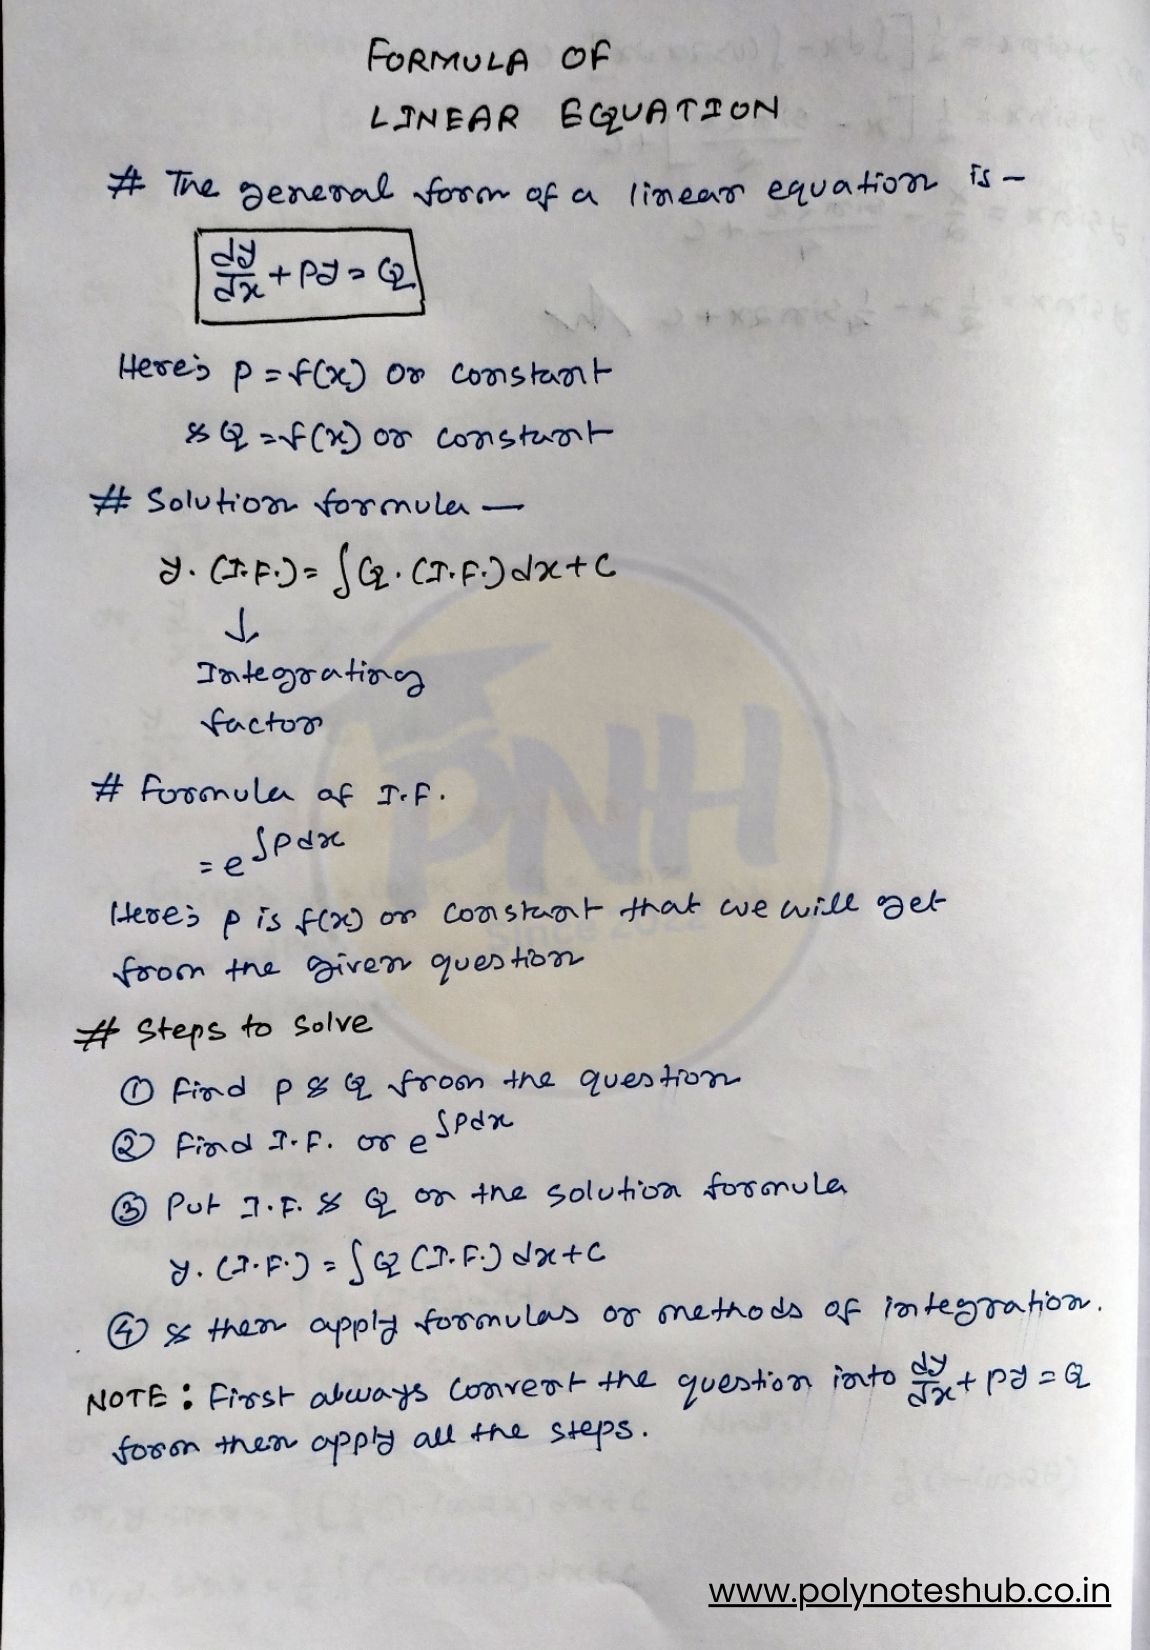 FORMULA OF
LINEAR EQUATION
# The general form of a linear equation is –
dy/dx + Py = Q
Here's P = f(x) or constant
& Q = f(x) or constant
# Solution formula —
y. (I.F.) = ∫Q. (I.F.) dx + C
↓
Integrating
factor
# Formula of I.F.
= e^∫Pdx
Here's P is f(x) or constant that we will get
from the given question
# Steps to solve
① Find P & Q from the question
② Find I.F. or e^∫Pdx
③ Put I.F. & Q on the solution formula
y. (I.F.) = ∫Q (I.F.) dx + C
④ & then apply formulas or methods of integration.
NOTE : First always convert the question into dy/dx + Py = Q
form then apply all the steps.
PNH
Since 2022
www.polynoteshub.co.in